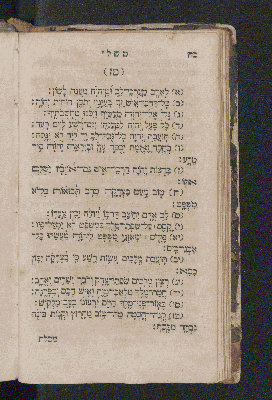 כח משלי
(טז)
(א) לאדם מערכי לב ומיהוה מענה לשון:
(ב) כל דרכי איש זך בעיניו ותכן רוחות יהוה:
(ג) גל אל יהוה מעשיך ויכנו מחשבתיך:
(ד) כל פעל יהוה למענהו וגם רשע ליום רעה:
(ה) תועבת יהוה כל גבה לב יד ליד לא ינקה:
(ו) בחסד ואמת יכפר עון וביראת יהוה סור
מרע:
(ז) ברצות יהוה דרכי איש גם אויביו ישלם
אתו:
(ח) טוב מעט בצדקה מרב תבואות בלא
משפט:
(ט) לב אדם יחשב דרכו ויהוה יכין צעדו:
(י) קסם על שפתי מלך במשפט לא ימעל פיו:
(יא) פלס ומאזני משפט ליהוה מעשהו כל
אבני כיס:
(יב) תועבת מלכים עשות רשע כי בצדקה יכון
כסא:
(יג) רצון מלכים שפתי צדק ודבר ישרים יאהב:
(יד) חמת מלך מלאכי מות ואיש חכם יכפרנה:
(טו) באור פני מלך חיים ורצונו כעב מלקוש:
(טז) קנה חכמה מה טוב מחרוץ וקנות בינה
נבחר מכסף:
מסלת